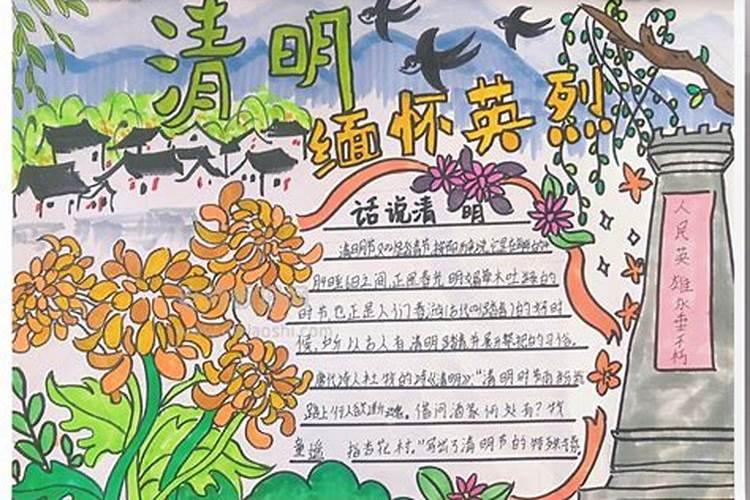 清明
缅怀英烈
话说清 明
清明节又叫踏青节,按
月4日至6日之间,正是春光明媚草木吐绿的
时节,也正是人们春游(古代叫踏青)的好时
候,所以古人有清明踏青并展开
唐代诗人杜牧的诗《清明》:"清明时节雨纷纷
路上行人欲断魂。借问酒家何处有?牧
童遥 指杏花村。"写出了清明节的特殊
人民英雄永垂不朽